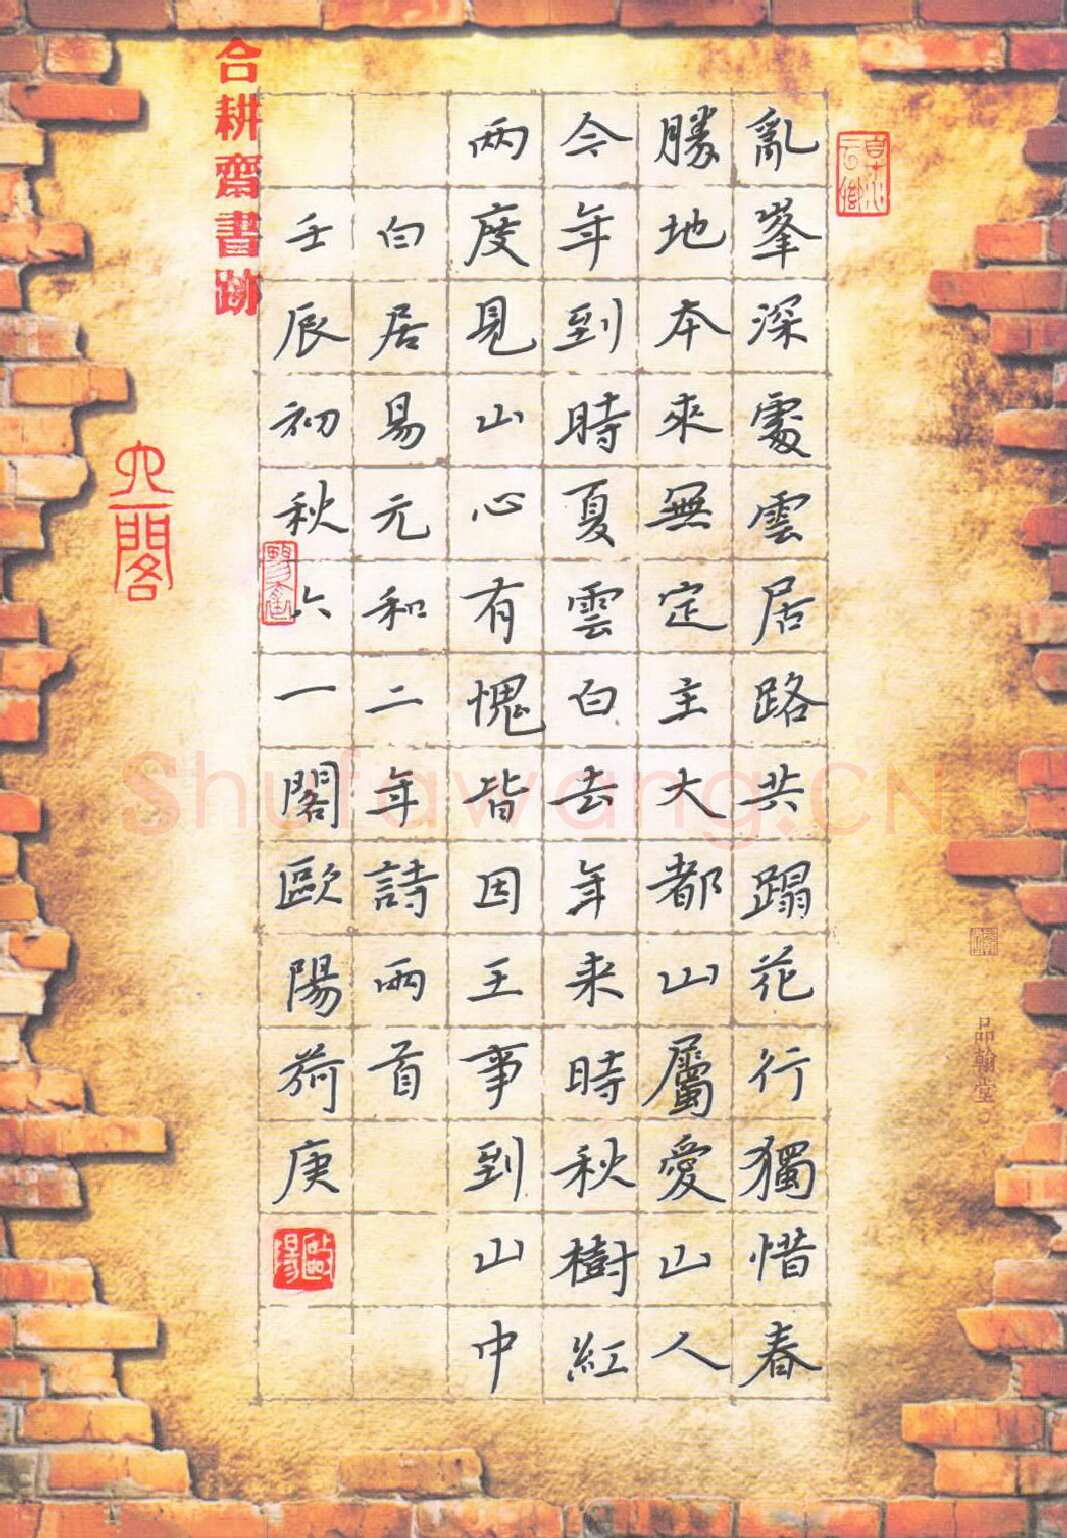 亂峯深處雲居路共蹋花行獨惜春
勝地本來無定主大都山屬愛山人
今年到時夏雲白去年来時秋樹紅
两度見山心有愧皆因王事到山中
白居易元和二年詩兩首
壬辰初秋六一閣歐陽荷庚
合耕齋書跡
六一閣
歐陽
品翰堂
Shufawang.CN